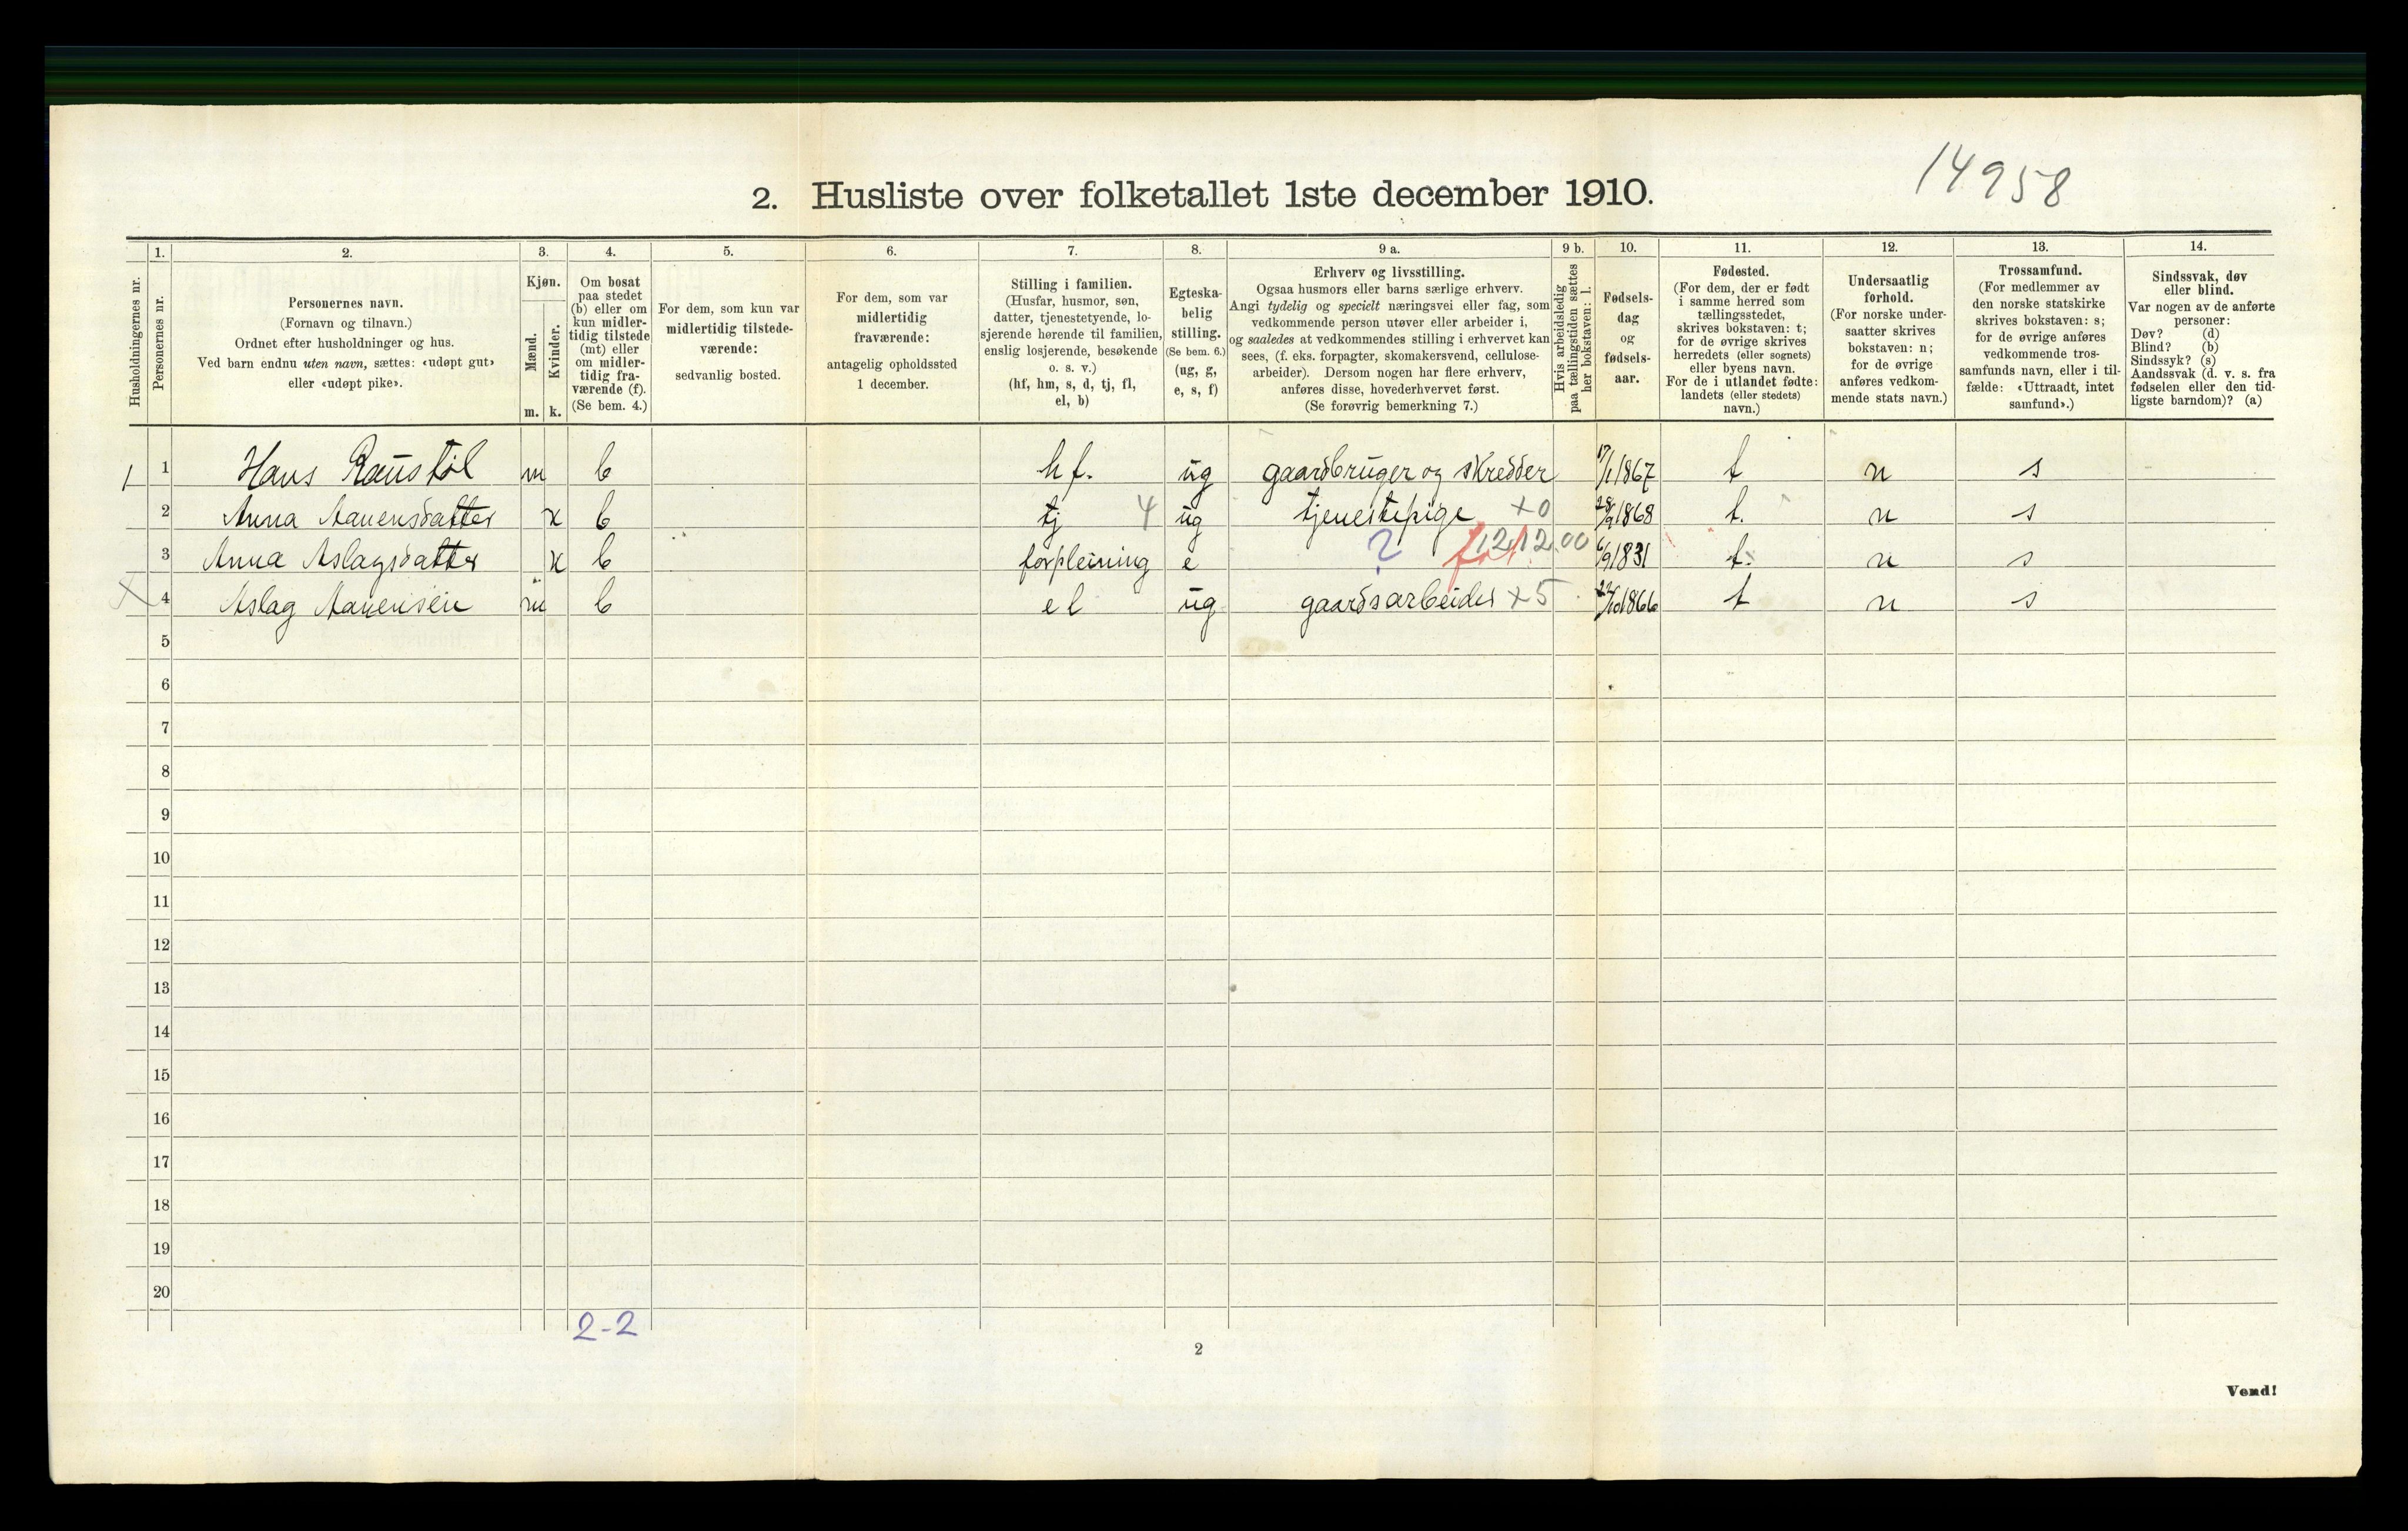 14958
2. Husliste over folketallet 1ste december 1910.
Husholdningernes nr.
1.
Personernes nr.
2.
Personernes navn.
(Fornavn og tilnavn.)
Ordnet efter husholdninger og hus.
Ved barn endnu uten navn, sættes: «udøpt gut»
eller «udøpt pike».
3.
Kjøn.
Mænd.
Kvinder.
m. k.
4.
Om bosat
paa stedet
(b) eller om
kun midler-
tidig tilstede
(mt) eller
om midler-
tidig fra-
værende (f).
(Se bem. 4.)
5.
For dem, som kun var
midlertidig tilstede-
værende:
sedvanlig bosted.
6.
For dem, som var
midlertidig
fraværende:
antagelig opholdssted
1 december.
7.
Stilling i familien.
(Husfar, husmor, søn,
datter, tjenestetyende, lo-
sjerende hørende til familien,
enslig losjerende, besøkende
o. s. v.)
(hf, hm, s, d, tj, fl,
el, b)
8.
Egteska-
belig
stilling.
(Se bem. 6.)
(ug, g,
e, s, f)
9 a.
Erhverv og livsstilling.
Ogsaa husmors eller barns særlige erhverv.
Angi tydelig og specielt næringsvei eller fag, som
vedkommende person utøver eller arbeider i,
og saaledes at vedkommendes stilling i erhvervet kan
sees, (f. eks. forpagter, skomakersvend, cellulose-
arbeider). Dersom nogen har flere erhverv,
anføres disse, hovederhvervet først.
(Se forøvrig bemerkning 7.)
9 b.
Hvis arbeidsledig
paa tællingstiden sættes
her bokstaven: l.
10.
Fødsels-
dag
og
fødsels-
aar.
11.
Fødested.
(For dem, der er født
i samme herred som
tællingsstedet,
skrives bokstaven: t;
for de øvrige skrives
herredets (eller sognets)
eller byens navn.
For de i utlandet fødte:
landets (eller stedets)
navn.)
12.
Undersaatlig
forhold.
(For norske under-
saatter skrives
bokstaven: n;
for de øvrige
anføres vedkom-
mende stats navn.)
13.
Trossamfund.
(For medlemmer av
den norske statskirke
skrives bokstaven: s;
for de øvrige anføres
vedkommende tros-
samfunds navn, eller i til-
fælde: «Uttraadt, intet
samfund».)
14.
Sindssvak, døv
eller blind.
Var nogen av de anførte
personer:
Døv? (d)
Blind? (b)
Sindssyk? (s)
Aandssvak (d. v. s. fra
fødselen eller den tid-
ligste barndom)? (a)
1 1 Hans Raustøl m b hf. ug gaardbruger og skredder 17/1 1867 t n s
2 Anna Aanensdatter k b tj 4 ug tjenestepige +0 1868 t. n s
3 Anna Aslagsdatter k b forpleining e ? 1212.00 6/9 1831 t. n s
X 4 Aslag Aanensen m b el ug gaardsarbeider +5 1866 t n s
5
6
7
8
9
10
11
12
13
14
15
16
17
18
19
20
2-2
2
Vend!